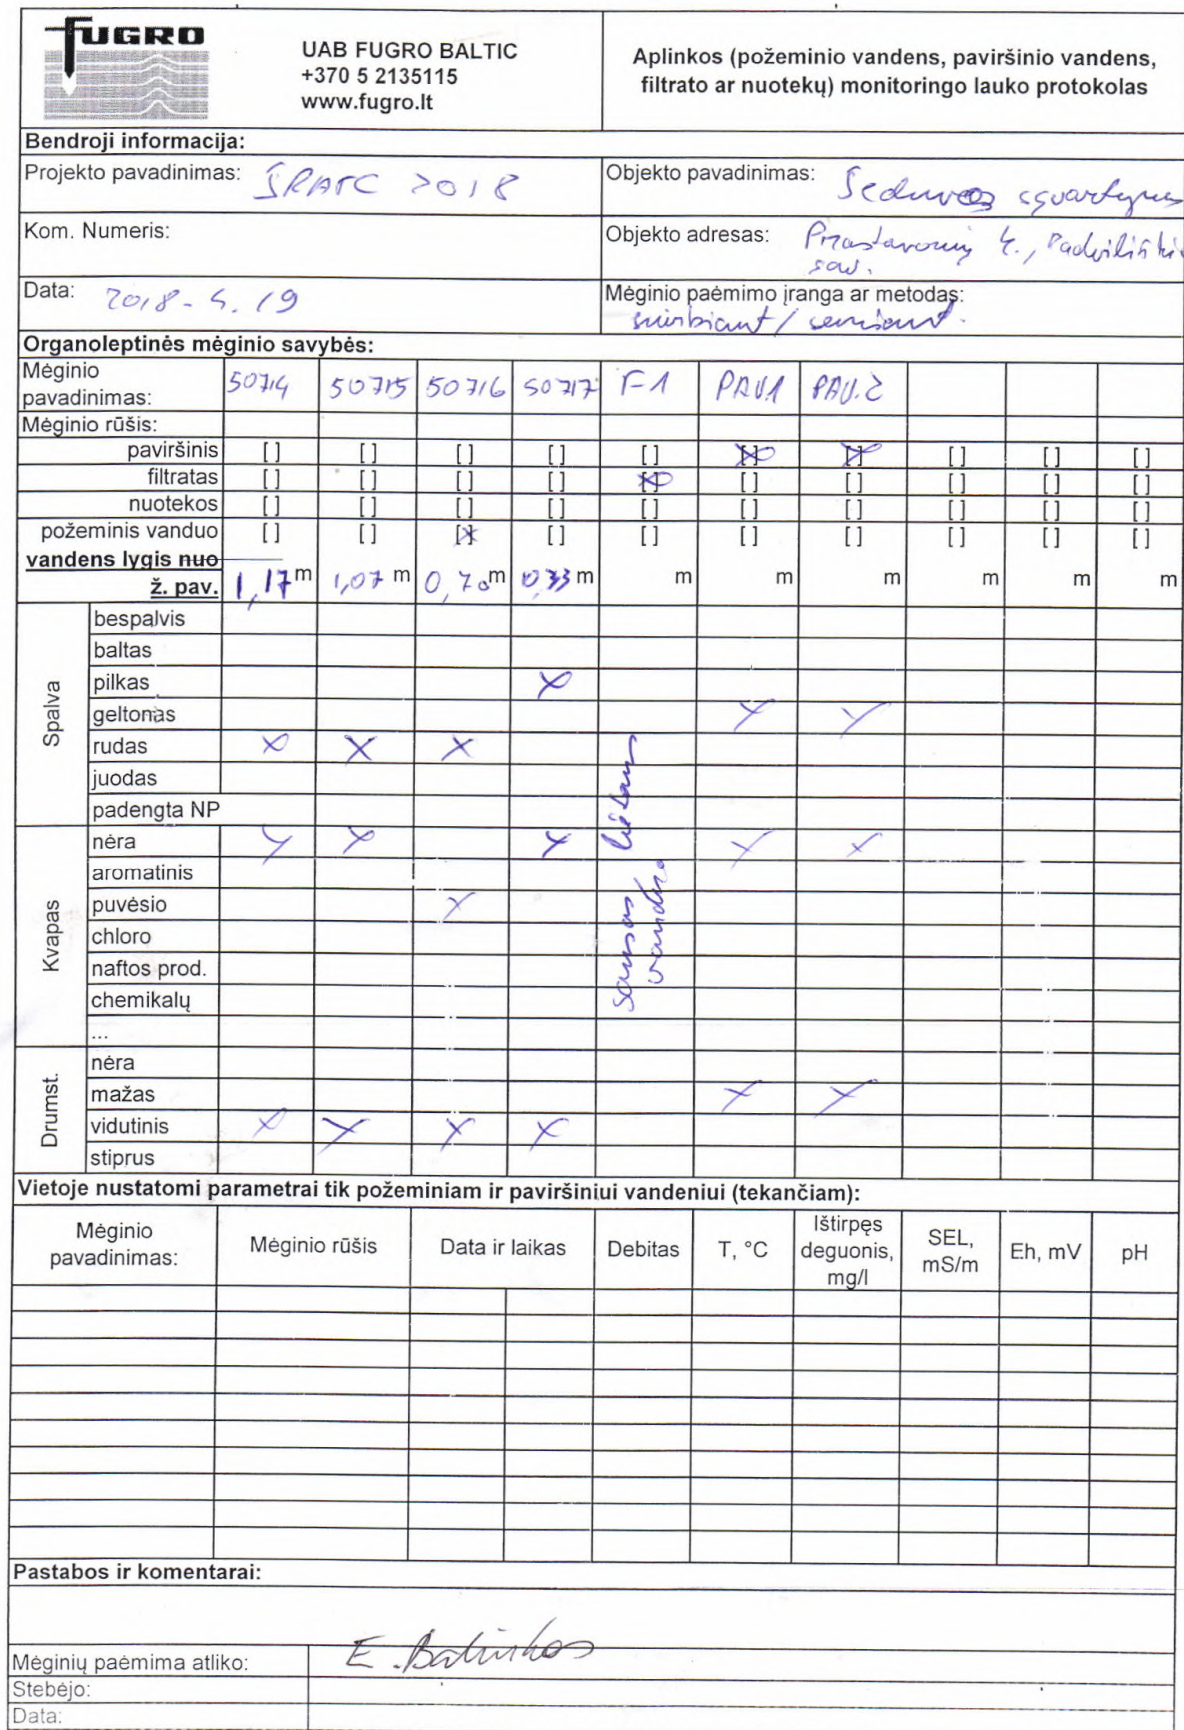 FUGRO
UAB FUGRO BALTIC
+370 5 2135115
www.fugro.lt
Aplinkos (požeminio vandens, paviršinio vandens,
filtrato ar nuotekų) monitoringo lauko protokolas
Bendroji informacija:
Projekto pavadinimas: ŠRATC 2018
Objekto pavadinimas: Šeduvos sąvartynas
Kom. Numeris:
Objekto adresas:
sav.
Data: 2018-4.19
Mėginio paėmimo įranga ar metodas:
siurbiant / semiant.
Organoleptinės mėginio savybės:
Mėginio
pavadinimas: 50714 50715 50716 50717 F-1 PAV1 PAV.2
Mėginio rūšis:
paviršinis [ ] [ ] [ ] [ ] [ ] [X] [X] [ ] [ ] [ ]
filtratas [ ] [ ] [ ] [ ] [X] [ ] [ ] [ ] [ ] [ ]
nuotekos [ ] [ ] [ ] [ ] [ ] [ ] [ ] [ ] [ ] [ ]
požeminis vanduo [ ] [ ] [X] [ ] [ ] [ ] [ ] [ ] [ ] [ ]
vandens lygis nuo
ž. pav. 1,17 m 1,07 m 0,70 m 0,33 m m m m m m m
Spalva
bespalvis
baltas
pilkas X
geltonas X X
rudas X X X
juodas
padengta NP
Kvapas
nėra X X X X X
aromatinis
puvėsio X
chloro
naftos prod.
chemikalų
...
sausas
Drumst.
nėra
mažas X X
vidutinis X X X X
stiprus
Vietoje nustatomi parametrai tik požeminiam ir paviršiniui vandeniui (tekančiam):
Mėginio
pavadinimas:
Mėginio rūšis
Data ir laikas
Debitas
T, °C
Ištirpęs
deguonis,
mg/l
SEL,
mS/m
Eh, mV
pH
Pastabos ir komentarai:
Mėginių paėmima atliko:
Stebėjo:
Data: